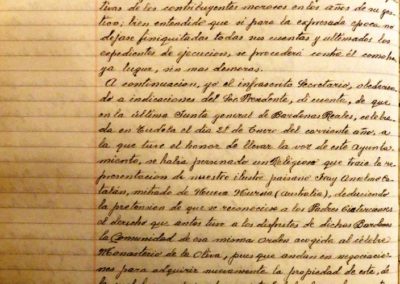 tivas de los contribuyentes morosos en los años de su ges-
tion; bien entendido que si para la expresada epoca no
dejase finiquitadas todas sus cuentas y ultimados los
expedientes de ejecucion, se procederá contra él como ha-
ya lugar, sin mas demoras.
A continuacion, yo el infrascrito Secretario, obedecien-
do a indicaciones del Sor. Presidente, dí cuenta, de que
en la última Junta general de Bardenas Reales, celebra-
da en Tudela el dia 21 de Enero del corriente año, a
la que tuve el honor de llevar la voz de este Ayunta-
miento, se habia personado un Religioso que traia la re-
presentacion de nuestro ilustre paisano Fray Anselmo Ca-
talán, mitrado de Nueva Nursia (Australia), deduciendo
la pretension de que se reconociese a los Padres Cistercienses
el derecho que antes tuvo a los disfrutes de dichas Bardenas
la Comunidad de esa misma Orden acogida al célebre
Monasterio de la Oliva, pues que andan en negociacio-
nes para adquirir nuevamente la propiedad de este, de